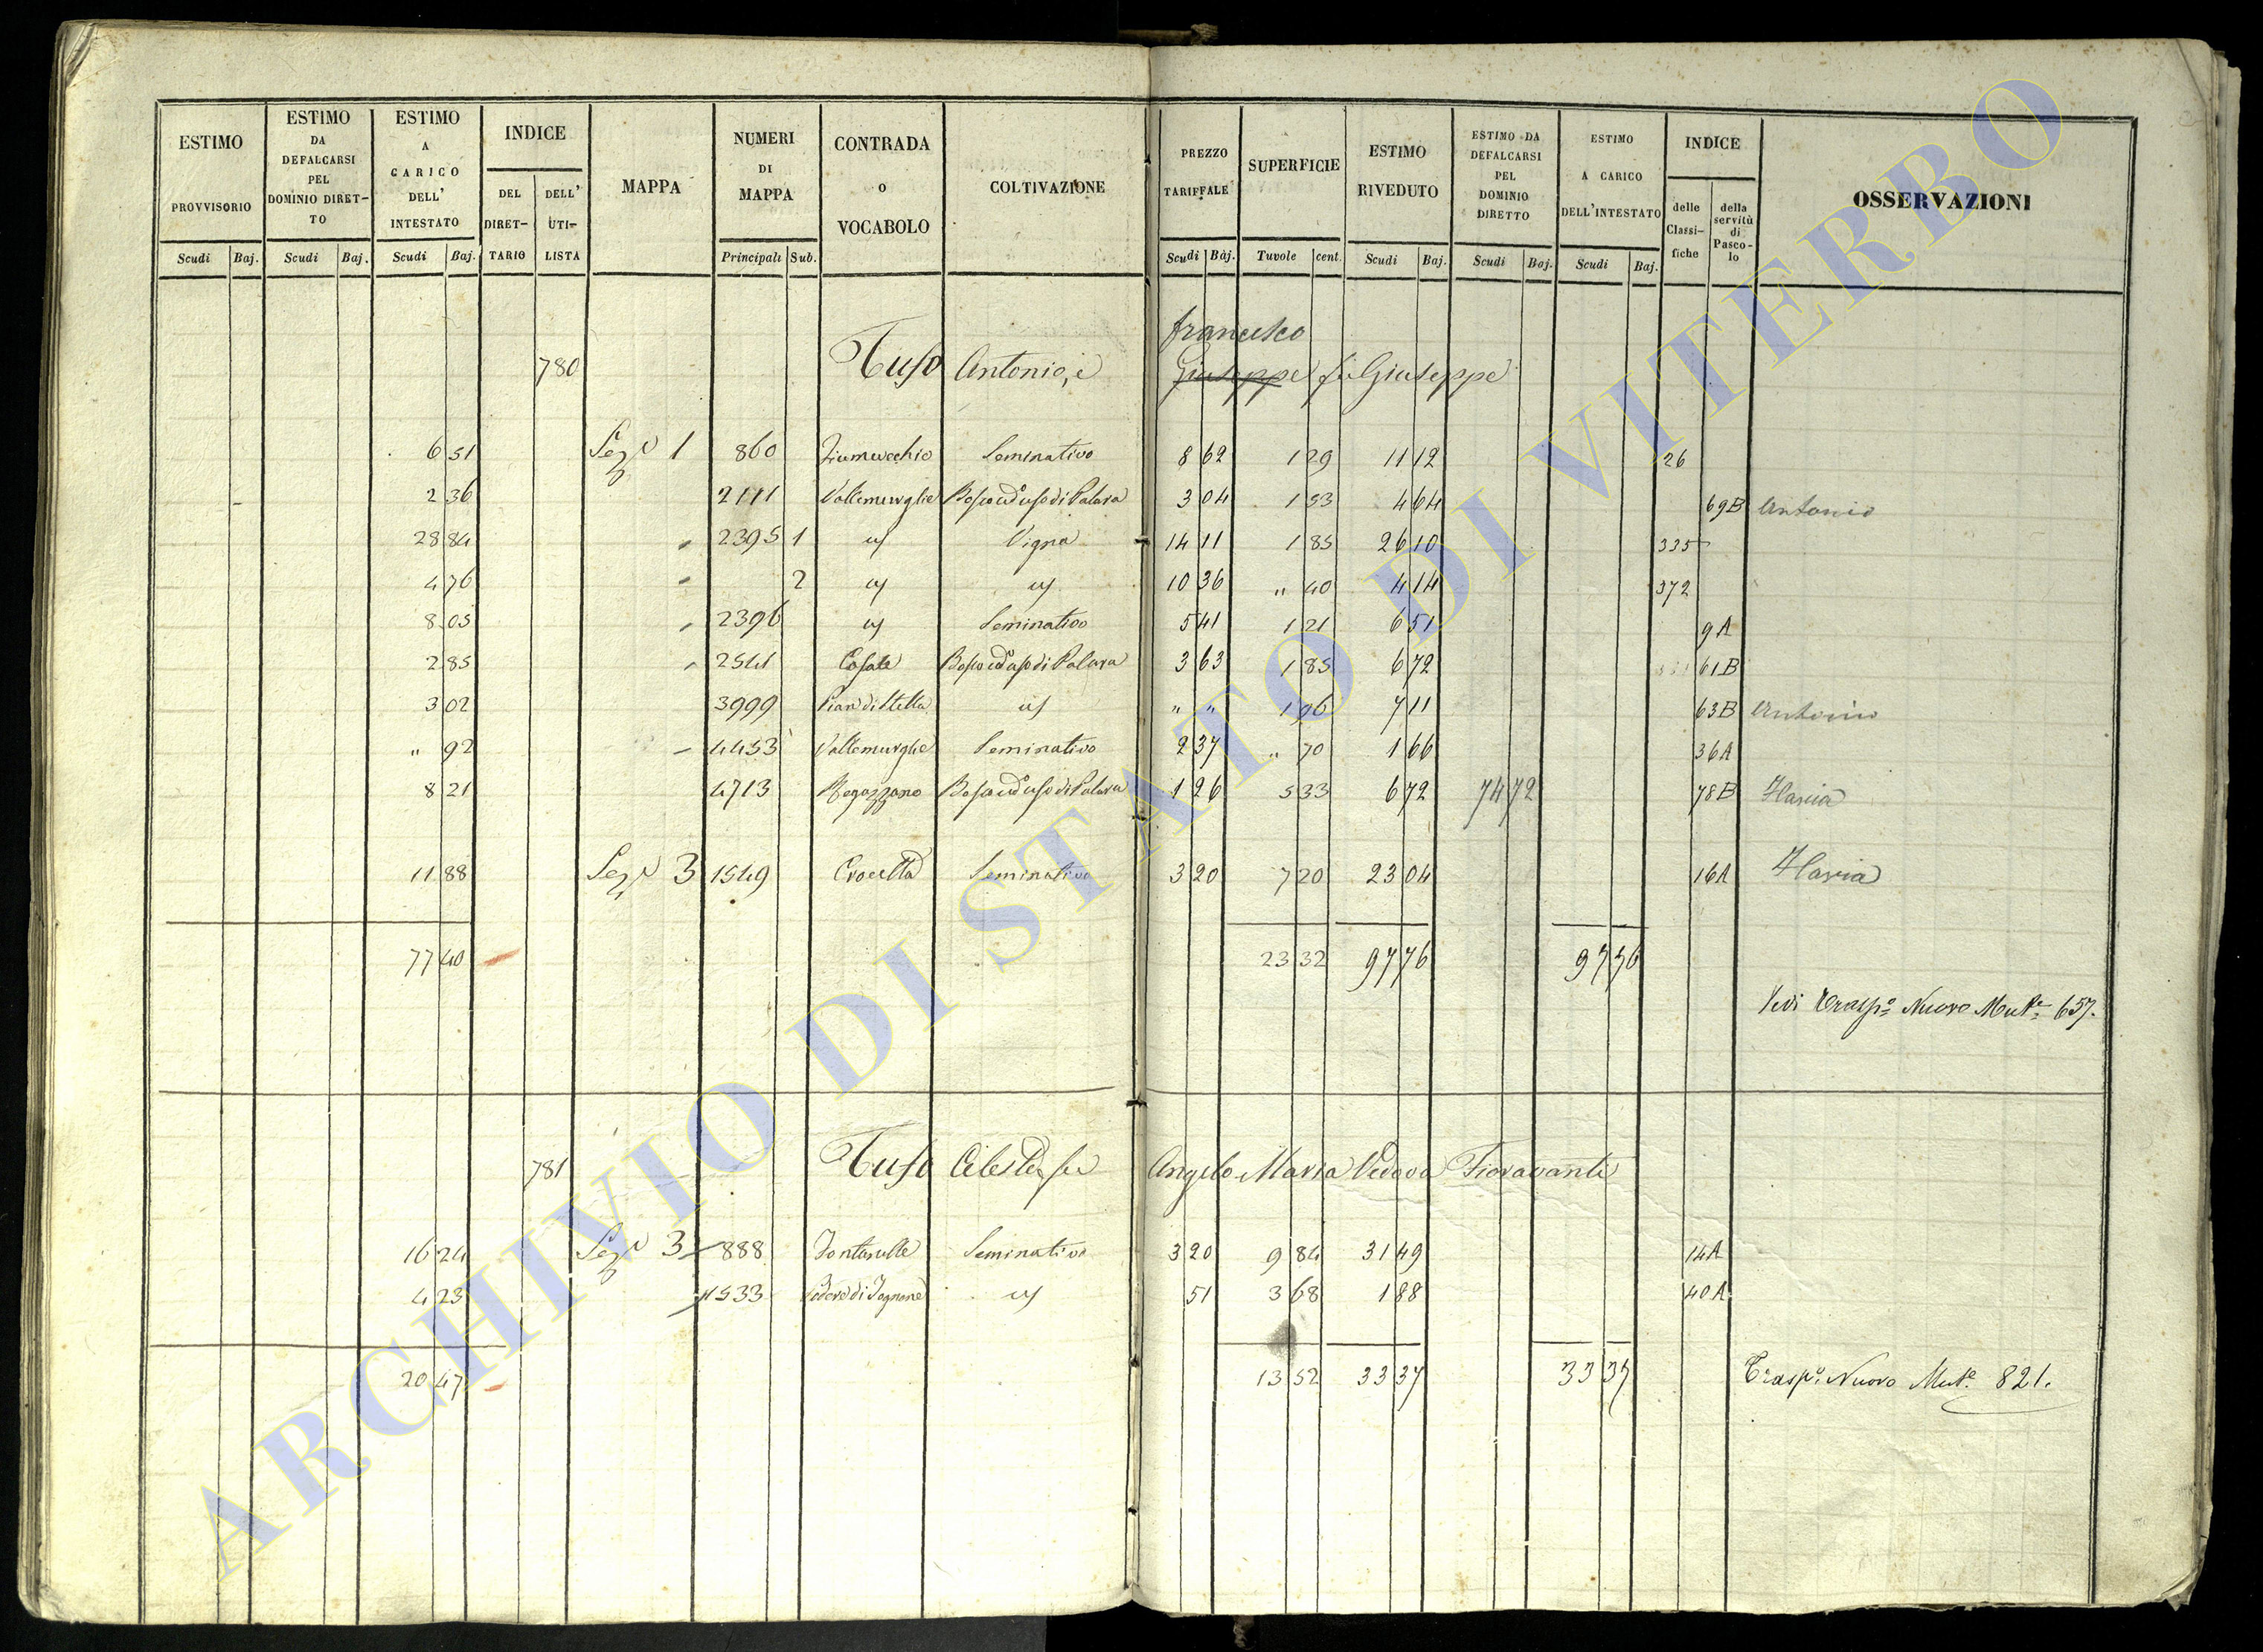 ESTIMO PROVVISORIO | ESTIMO DA DEFALCARSI PEL DOMINIO DIRETTO | ESTIMO A CARICO DELL' INTESTATO | INDICE | MAPPA | NUMERI DI MAPPA | CONTRADA O VOCABOLO | COLTIVAZIONE | PREZZO TARIFFALE | SUPERFICIE | ESTIMO RIVEDUTO | ESTIMO DA DEFALCARSI PEL DOMINIO DIRETTO | ESTIMO A CARICO DELL'INTESTATO | INDICE | OSSERVAZIONI
DEL DIRETTARIO | DELL' UTILISTA | delle Classifiche | della servitù di Pascolo
Scudi | Baj. | Scudi | Baj. | Scudi | Baj. | Principali | Sub. | Scudi | Baj. | Tavole | cent. | Scudi | Baj. | Scudi | Baj. | Scudi | Baj.
francesco
780 Tufo Antonio, e Giuseppe fu Giuseppe
6 51 | Sez. 1 | 860 | Fiumevechio | Seminativo | 8 62 | 1 29 | 11 12 | 26
2 36 | 2111 | Vallemurglie | Bosco ad uso di Palara | 3 04 | 1 53 | 4 64 | 69B | Antonio
28 84 | 2395 1 | Vigna | 14 11 | 1 85 | 26 10 | 335
4 76 | 2 | 10 36 | " 40 | 4 14 | 372
8 05 | 2396 | Seminativo | 5 41 | 1 21 | 6 51 | 9A
2 85 | 2541 | Casale | Bosco ad uso di Palara | 3 63 | 1 85 | 6 72 | 61B
3 02 | 3999 | Pian di Stella | " " | 1 96 | 7 11 | 63B | Antonio
" 92 | 4453 | Vallemurglie | Seminativo | 2 37 | " 70 | 1 66 | 36A
8 21 | 4713 | Ragazzano | Bosco ad uso di Palara | 1 26 | 5 33 | 6 72 | 74 72 | 78B | Ilaria
11 88 | Sez. 3 | 1549 | Crocetta | Seminativo | 3 20 | 7 20 | 23 04 | 16A | Ilaria
77 40 | 23 32 | 97 76 | 97 76
Vedi Trasp.o Nuovo Mut.e 657.
781 Tufo Celeste fu Angelo Maria Vedova Fioravanti
16 24 | Sez. 3 | 888 | Fontanelle | Seminativo | 3 20 | 9 84 | 31 49 | 14A
4 23 | 1533 | Podere di | 51 | 3 68 | 1 88 | 40A
20 47 | 13 52 | 33 37 | 33 37 | Trasp.o Nuovo Mut.e 821.
ARCHIVIO DI STATO DI VITERBO